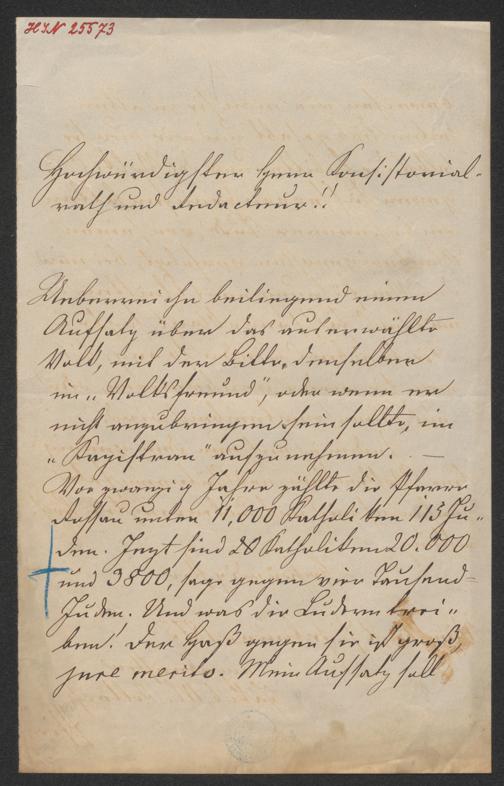 HIN 25573
Hochwürdigster Herr Konsistorial-
rath und Redacteur!!
Ueberreiche beiliegend einen
Aufsatz über das auserwählte
Volk, mit der Bitte, denselben
im „Volksfreund", oder wenn er
nicht anzubringen sein sollte, im
„Kapistran" aufzunehmen. —
Vor zwanzig Jahre zählte die Pfarre
unter 11,000 Katholiken 115 Ju-
den. Jezt sind 20 Katholiken 20.000
und 3800, sage gegen vier Tausend
Juden. Und was die Ludern trei-
ben! Der Haß gegen sie ist groß,
jure merito. Mein Aufsatz soll